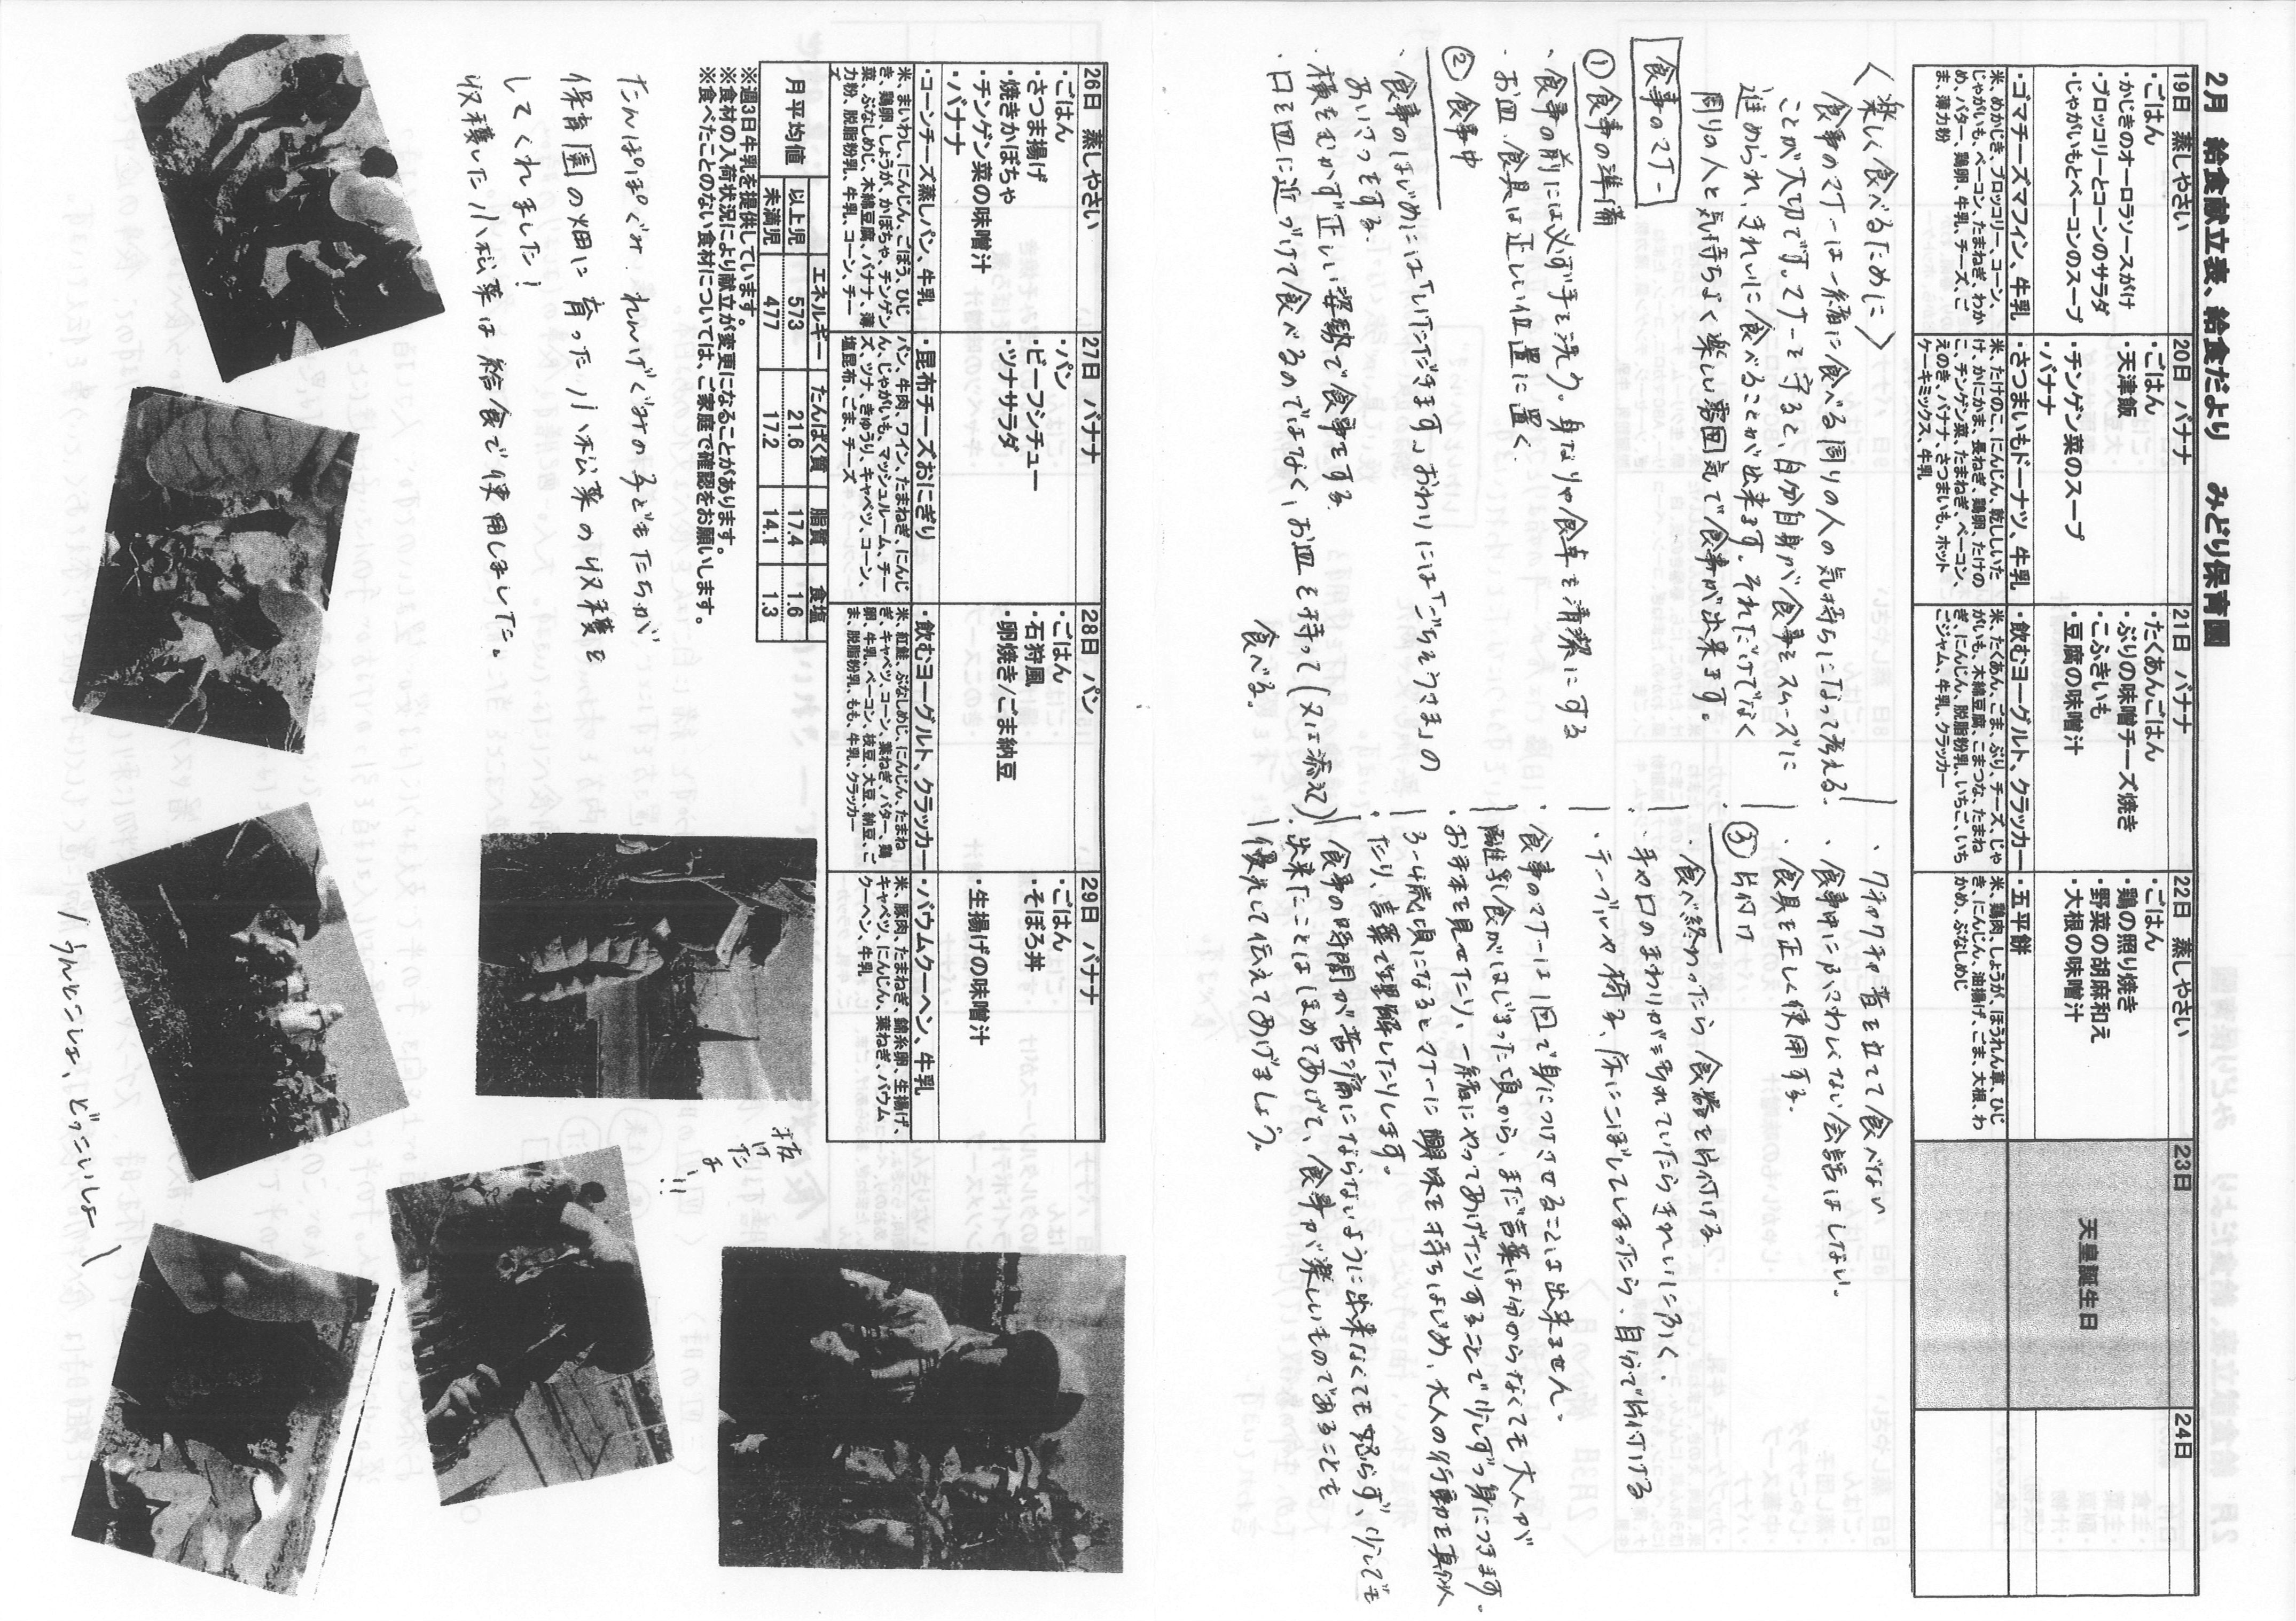 2月　給食献立表、給食だより　みどり保育園
19日　蒸しやさい
・ごはん
・かじきのオーロラソースがけ
・ブロッコリーとコーンのサラダ
・じゃがいもとベーコンのスープ
・ゴマチーズマフィン、牛乳
米、めかじき、ブロッコリー、コーン、
じゃがいも、ベーコン、たまねぎ、わか
め、バター、鶏卵、牛乳、チーズ、ご
ま、薄力粉
20日　バナナ
・ごはん
・天津飯
・チンゲン菜のスープ
・バナナ
・さつまいもドーナツ、牛乳
米、たけのこ、にんじん、乾ししいた
け、かにかま、長ねぎ、鶏卵、たけの
こ、チンゲン菜、たまねぎ、ベーコン、
えのき、バナナ、さつまいも、ホット
ケーキミックス、牛乳
21日　バナナ
・たくあんごはん
・ぶりの味噌チーズ焼き
・こふきいも
・豆腐の味噌汁
・飲むヨーグルト、クラッカー
米、たくあん、ごま、ぶり、チーズ、じゃ
がいも、木綿豆腐、こまつな、たまね
ぎ、にんじん、脱脂粉乳、いちご、いち
ごジャム、牛乳、クラッカー
22日　蒸しやさい
・ごはん
・鶏の照り焼き
・野菜の胡麻和え
・大根の味噌汁
・五平餅
米、鶏肉、しょうが、ほうれん草、ひじ
き、にんじん、油揚げ、ごま、大根、わ
かめ、ぶなしめじ
23日
天皇誕生日
24日
〈楽しく食べるために〉
食事のマナーは一緒に食べる周りの人の気持ちになって考える
ことが大切です。マナーを守ると、自分自身が食事をスムーズに
進められ、きれいに食べることが出来ます。それだけでなく
周りの人と気持ちよく楽しい雰囲気で食事が出来ます。
食事のマナー
①食事の準備
・食事の前には必ず手を洗う。身なりや食卓を清潔にする
・お皿、食具は正しい位置に置く。
②食事中
・食事のはじめには「いただきます」おわりには「ごちそうさま」の
あいさつをする。
・横をむかず正しい姿勢で食事をする。
・口を皿に近づけて食べるのではなく、お皿を持って(又は添える)
食べる。
・クチャクチャ音を立てて食べない
・食事中にふさわしくない会話はしない。
・食具を正しく使用する。
③片付け
・食べ終わったら食器を片付ける
・手や口のまわりが汚れていたらきれいにふく。
・テーブルや椅子、床にこぼしてしまったら、自分で片付ける
食事のマナーは1回で身につけさせることは出来ません。
離乳食がはじまった頃から、まだ言葉は分からなくても大人が
お手本を見せたり、一緒にやってあげたりすることで少しずつ身につきます。
3〜4歳頃になるとマナーに興味を持ちはじめ、大人の行動を真似
たり、言葉で理解したりします。
食事の時間が苦痛にならないように出来なくても怒らず、少しでも
出来たことはほめてあげて、食事が楽しいものであることを
優先して伝えてあげましょう。
26日　蒸しやさい
・ごはん
・さつま揚げ
・焼きかぼちゃ
・チンゲン菜の味噌汁
・バナナ
・コーンチーズ蒸しパン、牛乳
米、まいわし、にんじん、ごぼう、ひじ
き、鶏卵、しょうが、かぼちゃ、チンゲン
菜、ぶなしめじ、木綿豆腐、バナナ、薄
力粉、脱脂粉乳、牛乳、コーン、チー
ズ
27日　バナナ
・パン
・ビーフシチュー
・ツナサラダ
・昆布チーズおにぎり
パン、牛肉、ワイン、たまねぎ、にんじ
ん、じゃがいも、マッシュルーム、チー
ズ、ツナ、きゅうり、キャベツ、コーン、
塩昆布、ごま、チーズ
28日　パン
・ごはん
・石狩風
・卵焼き/ごま納豆
・飲むヨーグルト、クラッカー
米、紅鮭、ぶなしめじ、にんじん、たまね
ぎ、キャベツ、コーン、葉ねぎ、バター、鶏
卵、牛乳、ベーコン、枝豆、大豆、納豆、ご
ま、脱脂粉乳、もも、牛乳、クラッカー
29日　バナナ
・ごはん
・そぼろ丼
・生揚げの味噌汁
・バウムクーヘン、牛乳
米、豚肉、たまねぎ、錦糸卵、生揚げ、
キャベツ、にんじん、葉ねぎ、バウム
クーヘン、牛乳
月平均値　エネルギー　たんぱく質　脂質　食塩
以上児　573　21.6　17.4　1.6
未満児　477　17.2　14.1　1.3
※週3日牛乳を提供しています。
※食材の入荷状況により献立が変更になることがあります。
※食べたことのない食材については、ご家庭で確認をお願いします。
たんぽぽぐみ、れんげぐみの子どもたちが
保育園の畑に育った小松菜の収穫を
してくれました!
収穫した小松菜は給食で使用しました。
抜けたよ!!
\うんとこしょ、どっこいしょ/